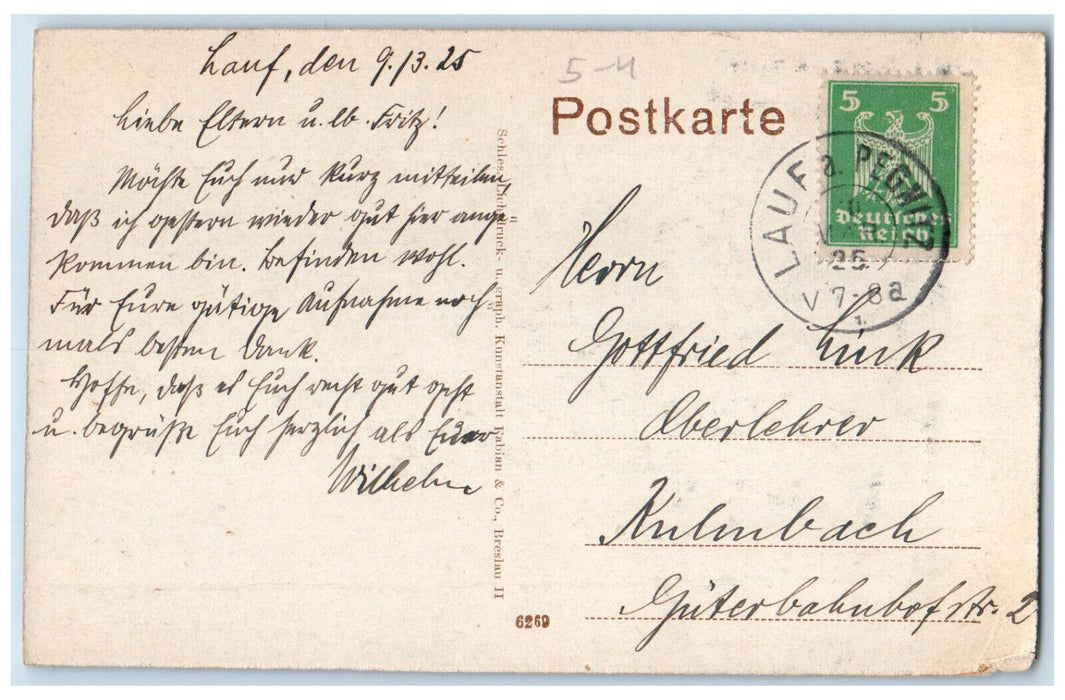 Lauf, den 9./3. 25
Liebe Eltern u. lb. Fritz!
Möchte Euch nur kurz mitteilen,
daß ich gestern wieder gut hier ange-
kommen bin. Befinden wohl.
Für Eure gütige Aufnahme noch-
mals besten Dank.
Hoffe, daß es Euch recht gut geht
u. begrüße Euch herzlich als Euer
Wilhelm
Schles. Lichtdruck- u. graph. Kunstanstalt Fabian & Co., Breslau II
6269
5-4
Postkarte
5 5
Deutsches
Reich
LAUF a. PEGNITZ
25
V 7-8a
1.
Herrn
Gottfried Link
Oberlehrer
Kulmbach
Güterbahnhofstr. 2